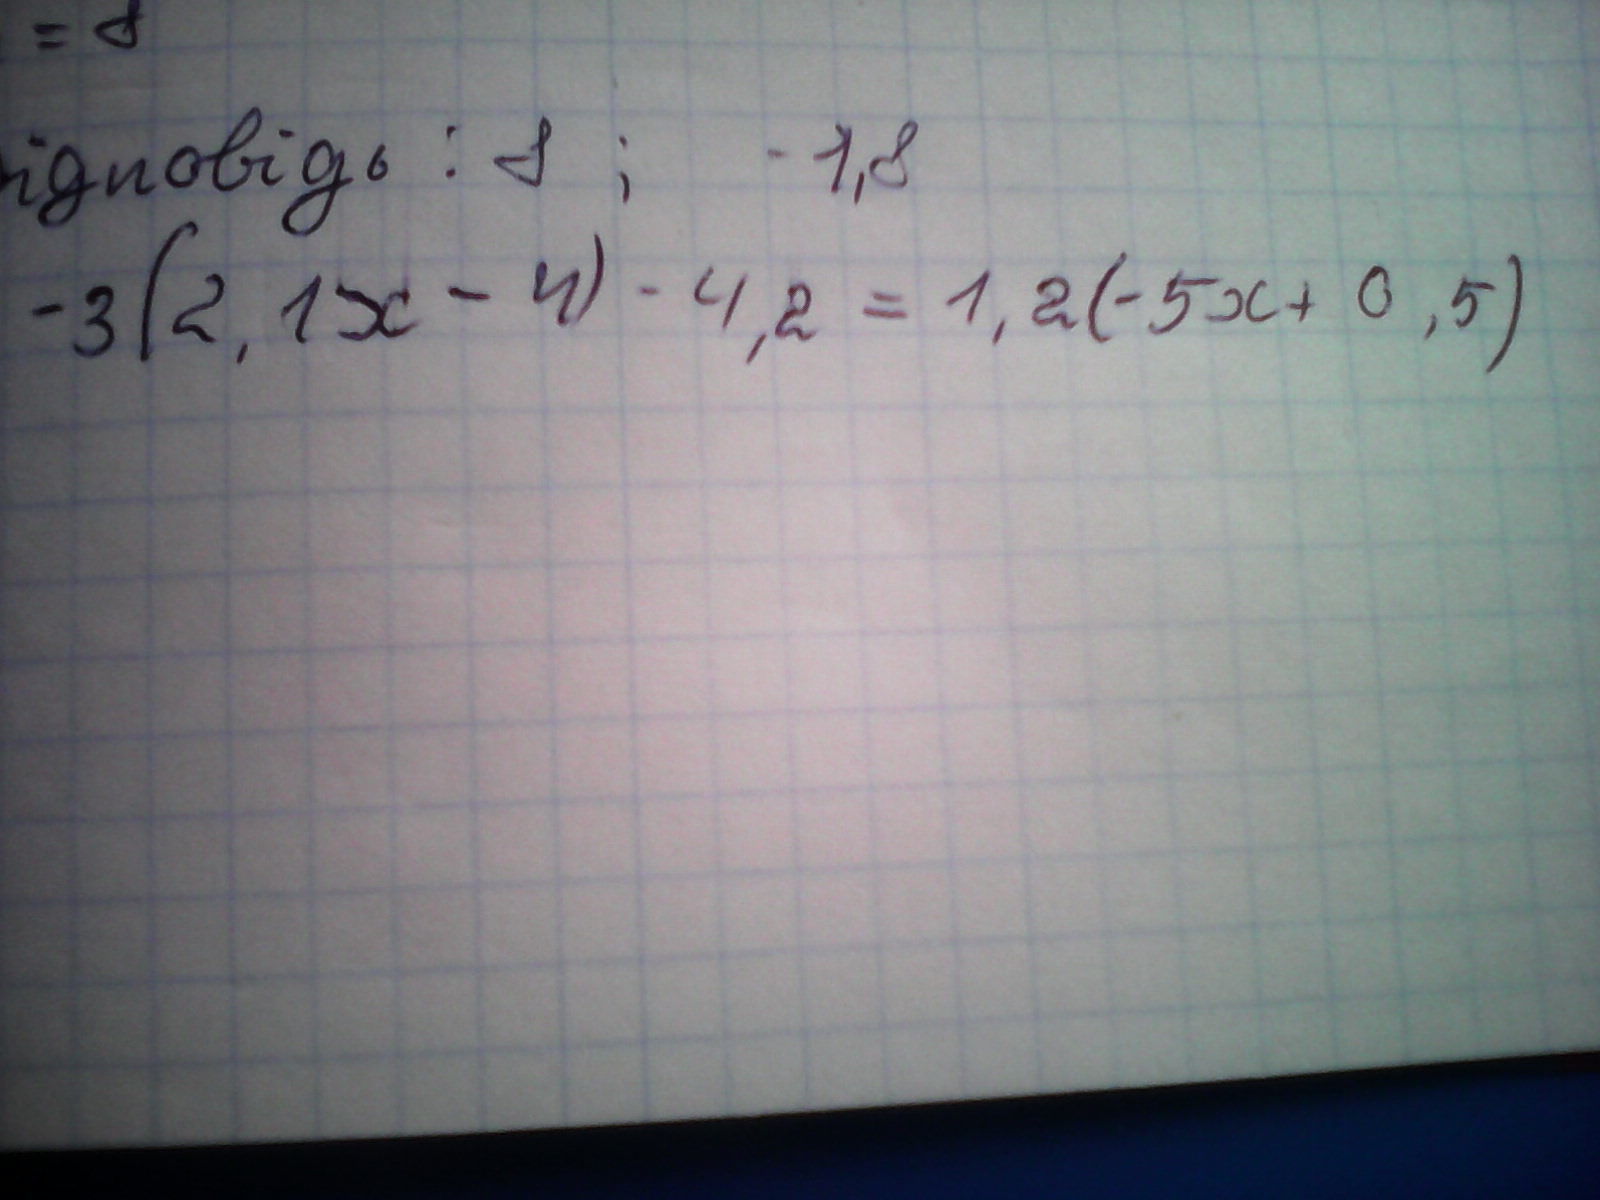 = 8
відповідь : 8 ; -1,8
-3(2,1x - 4) - 4,2 = 1,2(-5x + 0,5)